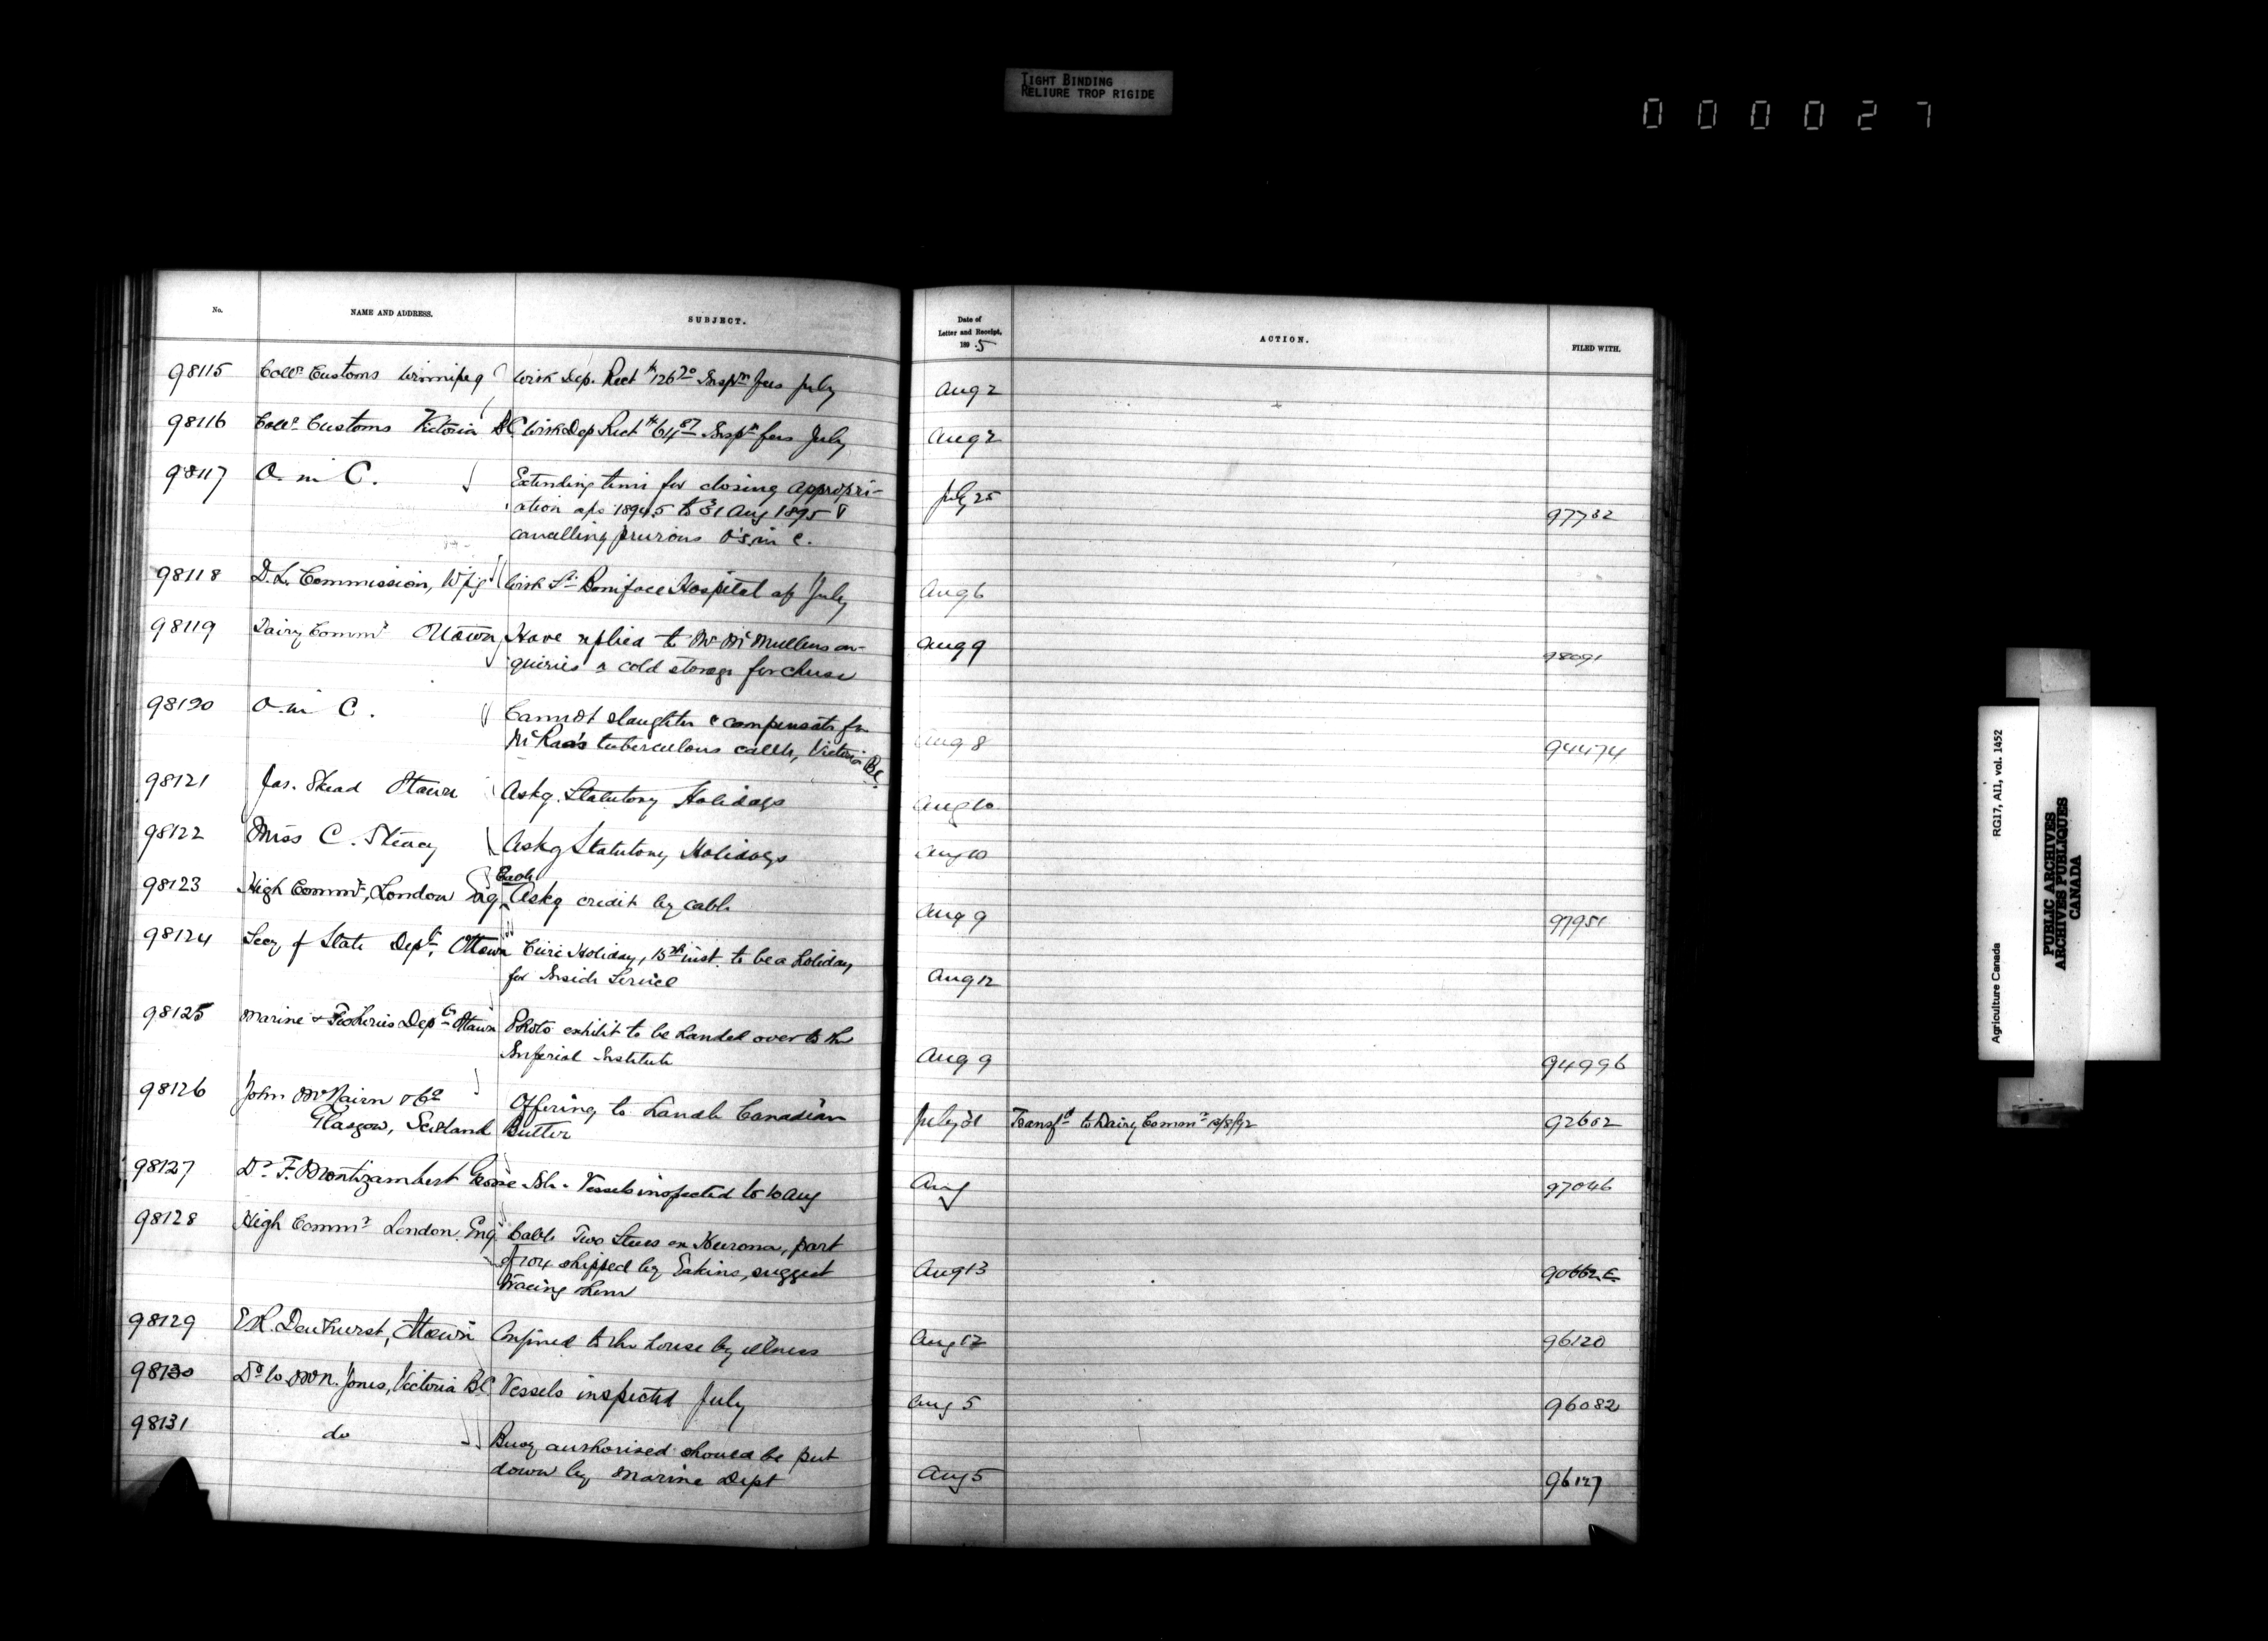 TIGHT BINDING
RELIURE TROP RIGIDE
000027
No. NAME AND ADDRESS. SUBJECT. Date of Letter and Receipt, 1895 ACTION. FILED WITH.
98115 Collr Customs Winnipeg With Dep. Rect $126.20 Inspn fees July Aug 2
98116 Collr Customs Victoria BC With Dep Rect $64.87 Inspn fees July Aug 2
98117 O. in C. Extending time for closing appropri- July 25
ation a/cs 1894.5 to 31 Aug 1895 & 97732
cancelling previous O's in C.
98118 D.L. Commission, Wpg With St Boniface Hospital a/c July Aug 6
98119 Dairy Commr Ottawa Have replied to Mr McMullens en- Aug 9
quiries re cold storage for cheese 98091
98120 O. in C. Cannot slaughter & compensate for
McRae's tuberculous cattle, Victoria BC Aug 8 94474
98121 Jas. Skead Ottawa Askg. Statutory Holidays Aug 10
98122 Miss C. Steacy Askg Statutory Holidays Aug 10
98123 High Commr, London Eng. Cable Askg credit by cable Aug 9 97951
98124 Secy of State Dept, Ottawa Civic Holiday, 15th inst. to be a holiday
for Inside Service Aug 12
98125 Marine & Fisheries Dept Ottawa Photo exhibit to be handed over to the
Imperial Institute Aug 9 94996
98126 John McNairn & Co
Glasgow, Scotland Offering to handle Canadian
Butter July 31 Transfd to Dairy Commr 13/8/92 92602
98127 Dr F. Montizambert Grosse Isle. Vessels inspected to 10 Aug Aug 97046
98128 High Commr London. Eng Cable Two Steers on Hurona, part
of 104 shipped by Eakins, suggest
tracing them Aug 13 90662 E
98129 E.R. Dewhurst, Ottawa Confined to the house by illness Aug 12 96120
98130 Dr W. McN. Jones, Victoria BC Vessels inspected July Aug 5 96082
98131 do Buoy authorised should be put
down by Marine Dept Aug 5 96127
Agriculture Canada RG17, AII, vol. 1452
PUBLIC ARCHIVES
ARCHIVES PUBLIQUES
CANADA